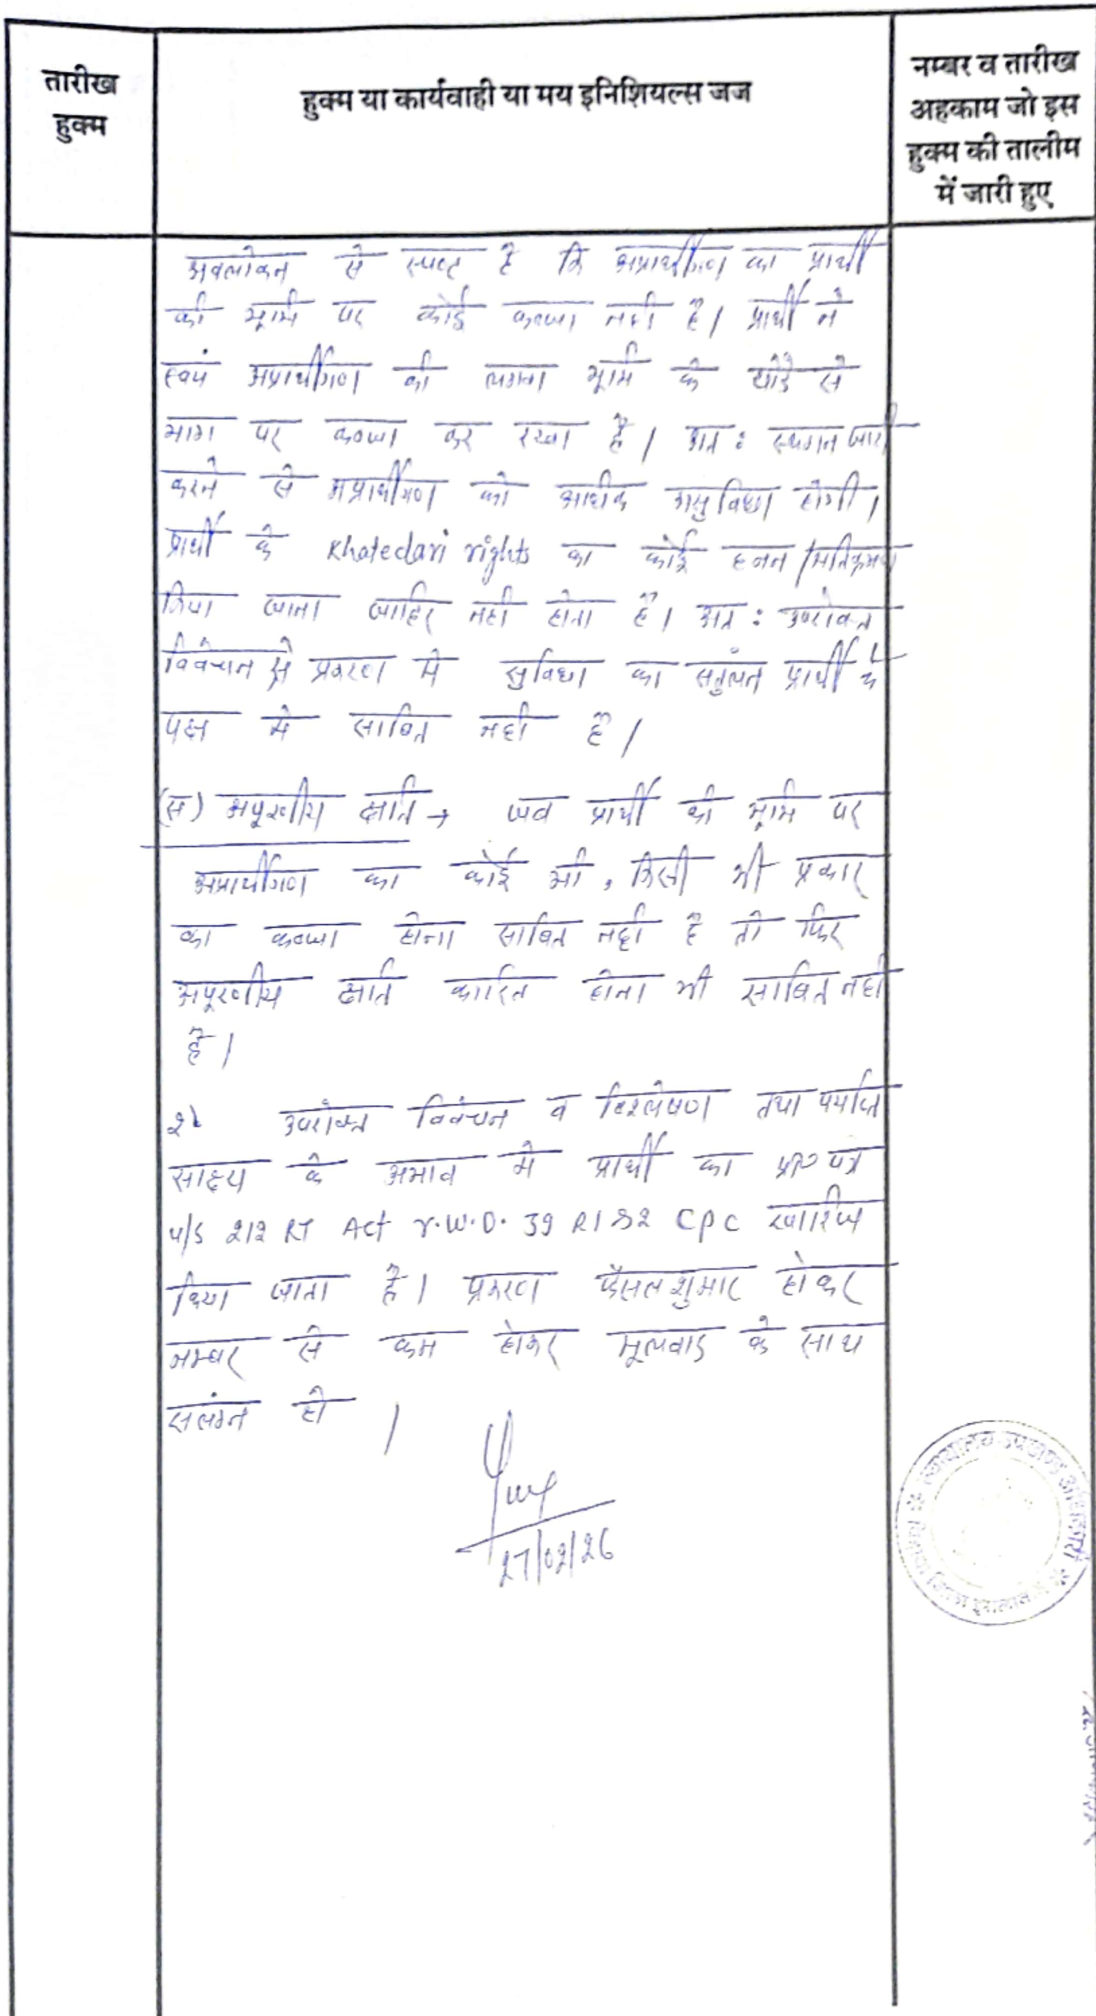 तारीख
हुक्म
हुक्म या कार्यवाही या मय इनिशियल्स जज
नम्बर व तारीख
अहकाम जो इस
हुक्म की तालीम
में जारी हुए
अवलोकन से स्पष्ट है कि अप्रार्थीगण का प्रार्थी
की भूमि पर कोई कब्जा नही है। प्रार्थी ने
स्वयं अप्रार्थीगण की लगता भूमि के थोडे से
भाग पर कब्जा कर रखा है। अत: स्थगन जारी
करने से अप्रार्थीगण को अधिक असुविधा होगी।
प्रार्थी के Khatedari rights का कोई हनन/अतिक्रमण
किया जाना जाहिर नही होता है। अत: उपरोक्त
विवेचन से प्रकरण मे सुविधा का संतुलन प्रार्थी के
पक्ष मे साबित नही है।
(स) अपूरणीय क्षति → जब प्रार्थी की भूमि पर
अप्रार्थीगण का कोई भी, किसी भी प्रकार
का कब्जा होना साबित नही है तो फिर
अपूरणीय क्षति कारित होना भी साबित नही
है।
उपरोक्त विवेचन व विश्लेषण तथा पर्याप्त
साक्ष्य के अभाव मे प्रार्थी का प्रा० पत्र
u/s 212 RT Act r.w.o. 39 R1&2 CPC खारिज
किया जाता है। प्रकरण फैसल शुमार होकर
नम्बर से कम होकर मूलवाद के साथ
सलंग्न हो।
27/02/26
न्यायालय उपखण्ड अधिकारी